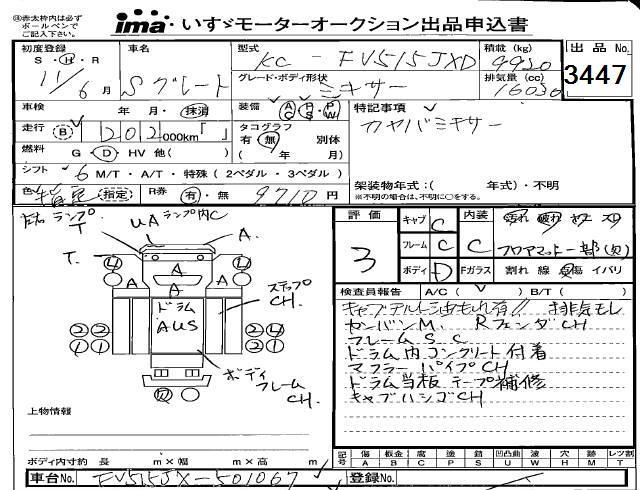 (注)赤太枠内は必ず
ボールペンで
ご記入下さい。
ima・いすゞモーターオークション出品申込書
初度登録
S・H・R
11/6月
車名
Sグレート
型式
KC-FV515JXD
グレード・ボディ形状
ミキサー
積載(kg)
排気量(cc)
出品No.
3447
車検
年 月・抹消
装備
AC・PS・PW
特記事項
カヤバミキサー
走行(B)
202000km「 」
タコグラフ
有・無 別体
( 年 月)
燃料
G・D・HV 他( )
シフト
6 M/T・A/T・特殊(2ペダル・3ペダル)
色
指定(指定)
R券
有・無 9710円
架装物年式:( 年式)・不明
※不明の場合は、不明に○をする。
左右ランプT
UA ランプ内C
A.
T.
A
A
A
A
ステップCH.
ドラム
AUS
ボディ
フレーム
CH.
上物情報
ボディ内寸約 長 m×幅 m×高 m
評価
3
キャブ C
フレーム C
ボディ D
内装 C
汚れ 破れ
フロアマット一部(欠)
Fガラス 割れ 線 点傷 イバリ
検査員報告 A/C( ) B/T( )
キャブチルト油もれ有!! 排気モレ
カンバンM. RフェンダCH
フレームS C
ドラム内コンクリート付着
マフラーパイプCH
ドラム当板テープ補修
キャブハンゴCH
記号 傷A 板金B 腐C 塗P 錆S 凹凸曲U 波W 穴H 跡M レツ割T
車台No. FV515JX-501067
登録No.